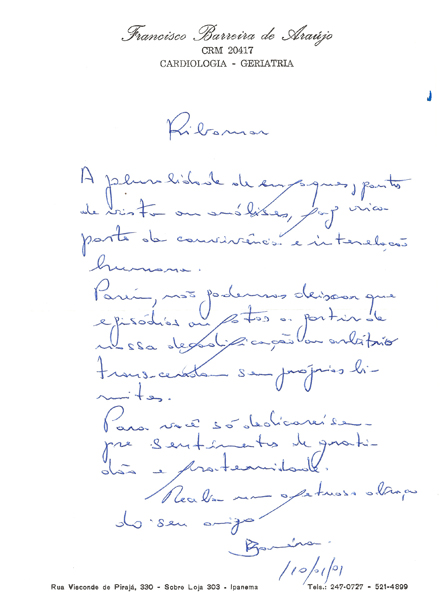 Francisco Barreira de Araújo
CRM 20417
CARDIOLOGIA - GERIATRIA
Ribamar
A pluralidade de enfoques, pontos
de vista ou análises, faz rica
parte da convivência e interelação
humana.
Porém, não podemos deixar que
episódios ou fatos a partir de
nossa decodificação ou arbítrio
transcendam seus próprios li-
mites.
Para você só dedicarei sem-
pre sentimento de grati-
dão e fraternidade.
Receba um afetuoso abraço
do seu amigo
Barreira.
10/01/01
Rua Visconde de Pirajá, 330 - Sobre Loja 303 - Ipanema Tels.: 247-0727 - 521-4899